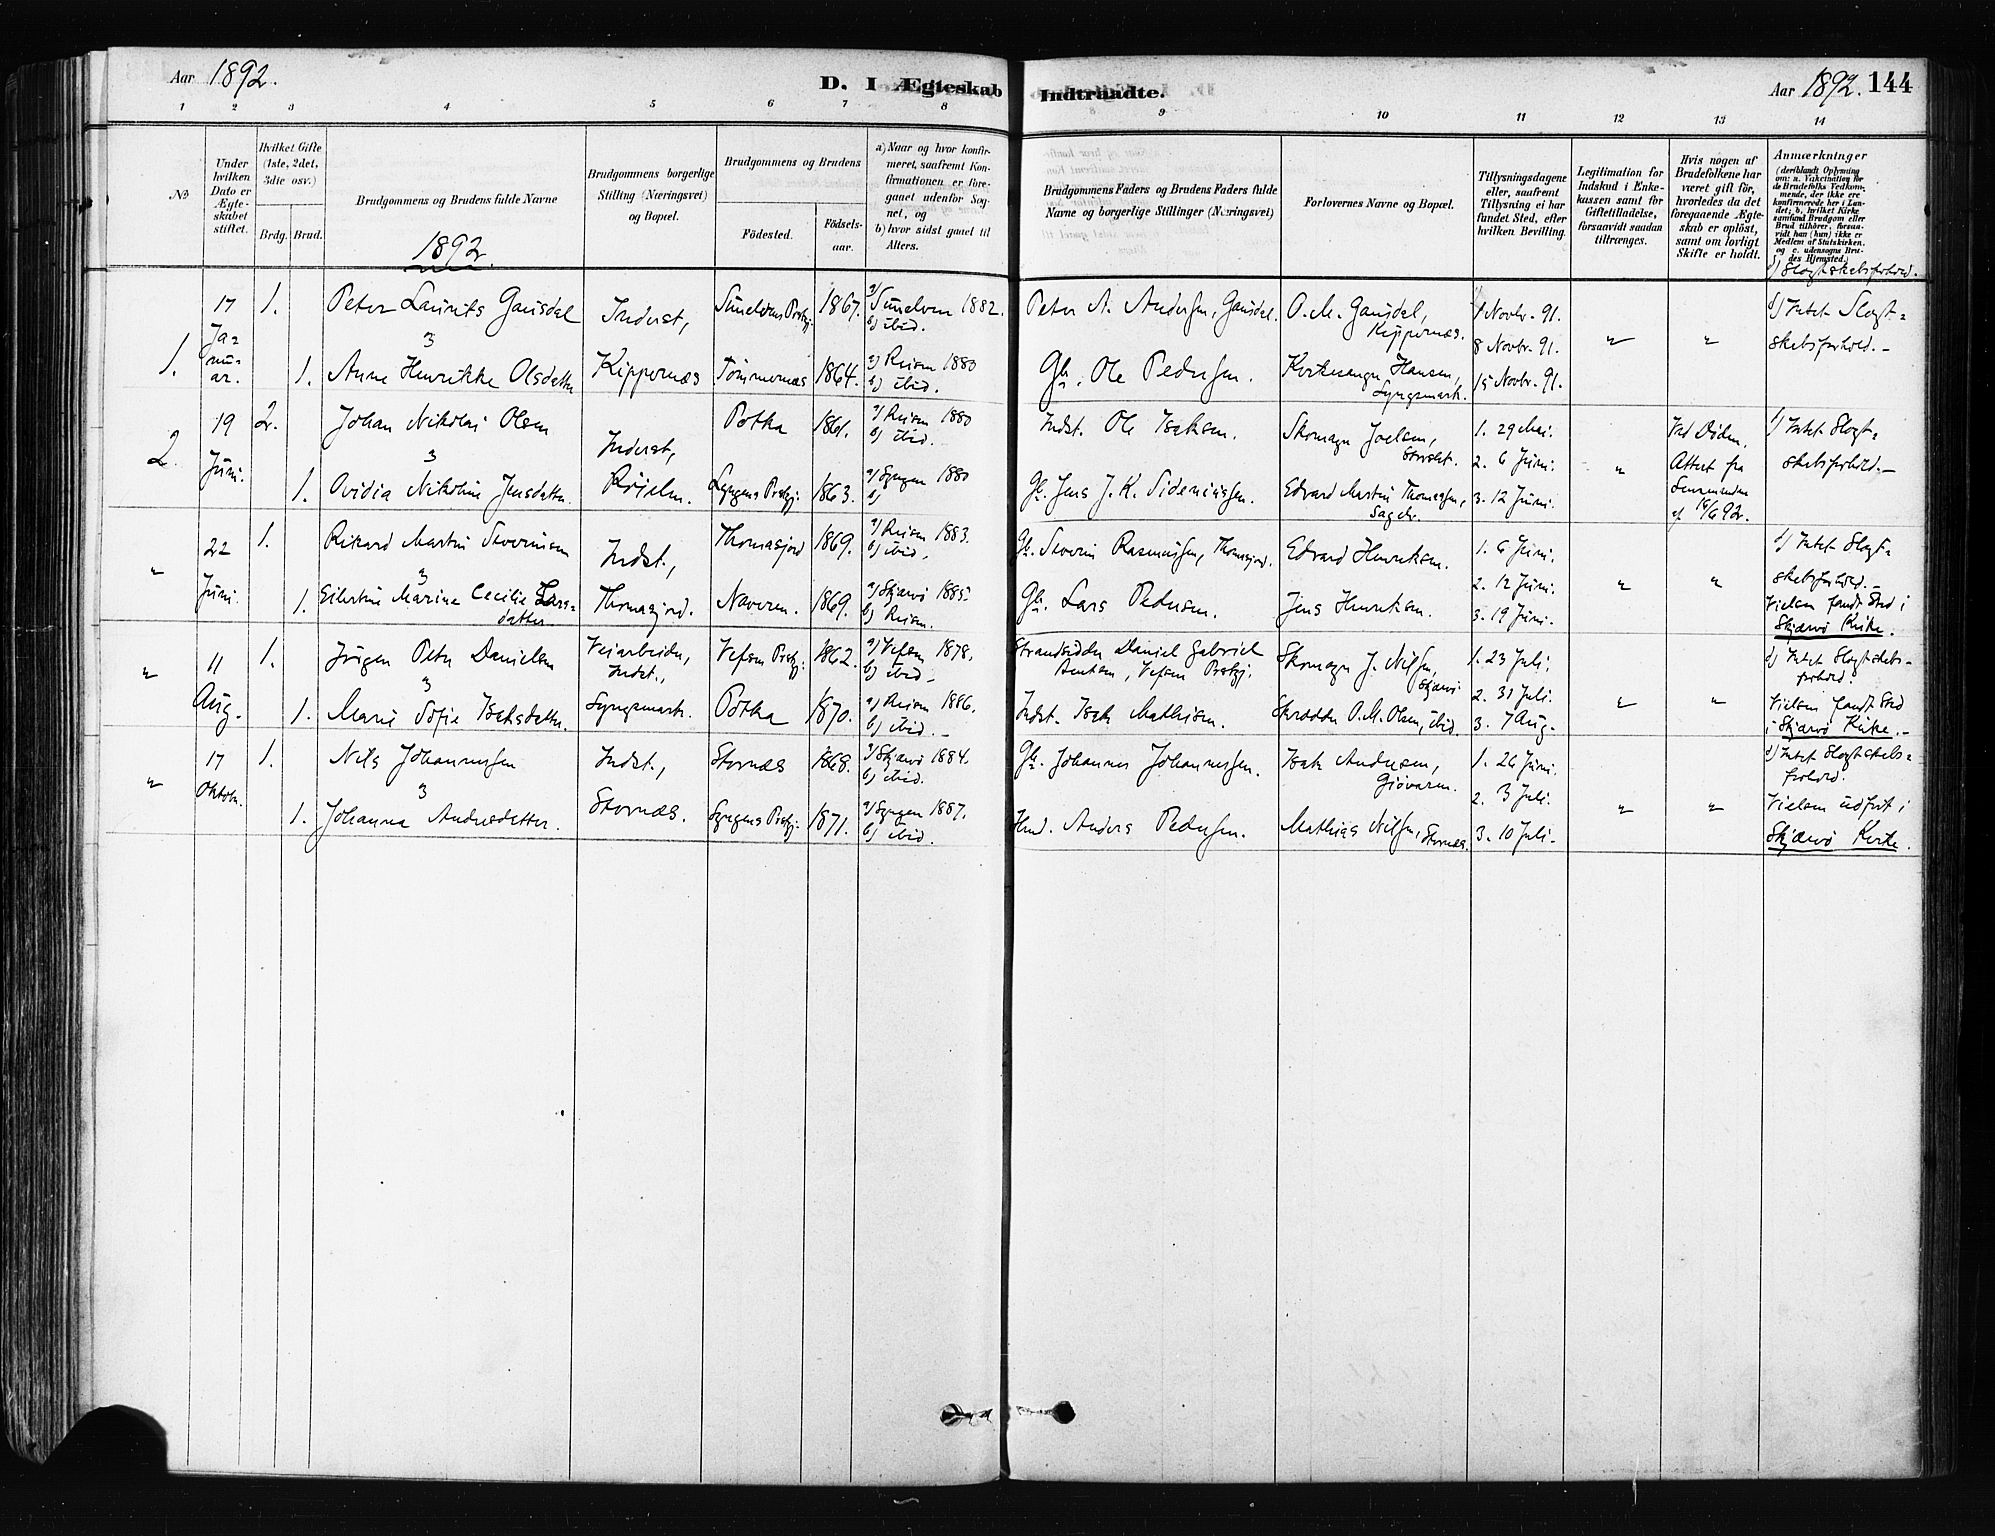 Aar 1892.
D. I Ægteskab
Indtraadte.
Aar 1892. 144
1 2 3 4 5 6 7 8
9 10 11 12 13 14
No
Under hvilken Dato er Ægteskabet stiftet.
Hvilket Gifte (1ste, 2det, 3die osv.)
Brdg. Brud.
Brudgommens og Brudens fulde Navne
Brudgommens borgerlige Stilling (Næringsvei) og Bopæl.
Brudgommens og Brudens
Födested. Födsels-aar.
a) Naar og hvor konfirmeret, saafremt Konfirmationen er foregaaet udenfor Sognet, og
b) hvor sidst gaaet til Alters.
Brudgommens Faders og Brudens Faders fulde Navne og borgerlige Stillinger (Næringsvei)
Forlovernes Navne og Bopæl.
Tillysningsdagene eller, saafremt Tillysning ei har fundet Sted, efter hvilken Bevilling.
Legitimation for Indskud i Enkekassen samt for Giftetilladelse, forsaavidt saadan tiltrænges.
Hvis nogen af Brudefolkene har været gift för, hvorledes da det foregaaende Ægteskab er oplöst, samt om lovligt Skifte er holdt.
Anmærkninger (deriblandt Oplysning om: a. Vakcination for de Brudefolks Vedkommende, der ikke ere konfirmerede her i Landet; b. hvilket Kirkesamfund Brudgom eller Brud tilhörer, forsaavidt han (hun) ikke er Medlem af Statskirken, og c. udensogns Brudes Hjemsted.)
d) Slegtskabsforhold.
1892.
1. 17 Januar. 1. Peter Laurits Gausdal Inderst, Sunelvens Prstgj. 1867. a) Sunelven 1882. b) ibid.
Peter A. Andersen, Gausdal. O. M. Gausdal, Kippernæs. 1 Novbr. 91. 8 Novbr. 91. 15 Novbr. 91. " " d) Intet Slegtskabsforhold.
&
1. Anne Henrikke Olsdatter Kippernæs Tömmernæs 1864. a) Reisen 1880 b) ibid.
Gbr. Ole Pedersen. Hansen, Lyngsmark.
2. 19 Juni. 2. Johan Nikolai Olsen Inderst, Potka 1861. a) Reisen 1880 b) ibid.
Indst. Ole Isaksen. Skomager Joelsen, 1. 29 Mai. 2. 6 Juni. 3. 12 Juni. " Ved Döden. Attest fra Lensmanden af 16/6 92. d) Intet Slegtskabsforhold.
&
1. Ovidia Nikoline Jensdatter. Lyngens Prstgj. 1863. a) Lyngen 1880 b)
Gbr. Jens J. K. Sideniussen. Edvard Martin Thomassen,
" 22 Juni. 1. Rikard Martin Severinsen Indst., Thomasjord 1869. a) Reisen 1883. b) ibid.
Gbr. Severin Rasmussen, Thomasjord. Edvard Henriksen. 1. 6 Juni. 2. 12 Juni. 3. 19 Juni. " " d) Intet Slegtskabsforhold. Vielsen fandt Sted i Skjærvö Kirke.
&
1. Eilertine Marine Cecilie Larsdatter Thomasjord. Naveren. 1869. a) Skjærvö 1885. b) Reisen.
Gbr. Lars Pedersen. Jens Henriksen.
" 11 Aug. 1. Jörgen Peter Danielsen Veiarbeider, Indst., Vefsen Prstgj. 1862. a) Vefsen 1878. b) ibid.
Strandsidder Daniel Gabriel Bentsen, Vefsen Prstgj. Skomager J. Nilsen, Skjærvö 1. 23 Juli. 2. 31 Juli. 3. 7 Aug. " " d) Intet Slegtskabsforhold. Vielsen fandt Sted i Skjærvö Kirke.
&
1. Marie Sofie Isaksdatter. Lyngsmark. Potka 1870. a) Reisen 1886. b) ibid.
Indst. Isak Mathisen. Skrædder O. M. Olsen, ibid.
" 17 Oktobr. 1. Nils Johannessen Indst., Stornæs 1868. a) Skjærvö 1884. b) ibid.
Gbr. Johannes Johannessen. Isak Andersen, Giövaren. 1. 26 Juni. 2. 3 Juli. 3. 10 Juli. " " d) Intet Slegtskabsforhold. Vielsen udfört i Skjærvö Kirke.
&
1. Johanna Andersdatter. Stornæs. Lyngens Prstgj. 1871. a) Lyngen 1887. b) ibid.
Anders Pedersen. Mathias Nilsen, Stornæs.